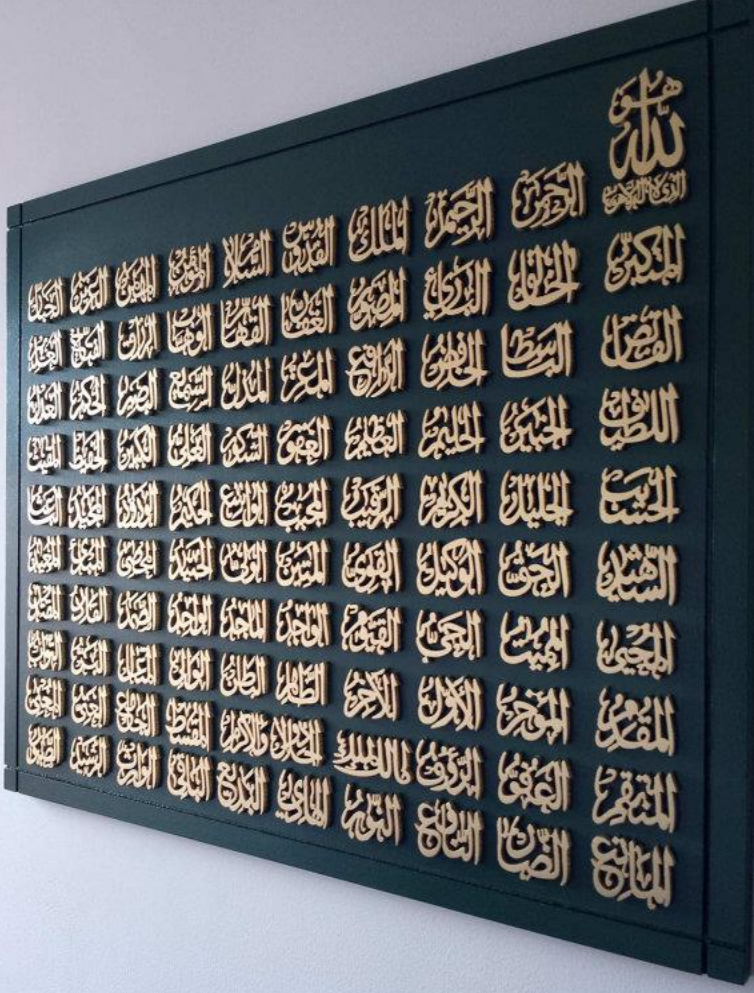 هو الله الذي لا إله إلا هو الرحمن الرحيم الملك القدوس السلام المؤمن المهيمن العزيز الجبار
المتكبر الخالق البارئ المصور الغفار القهار الوهاب الرزاق الفتاح العليم
القابض الباسط الخافض الرافع المعز المذل السميع البصير الحكم العدل
اللطيف الخبير الحليم العظيم الغفور الشكور العلي الكبير الحفيظ المقيت
الحسيب الجليل الكريم الرقيب المجيب الواسع الحكيم الودود المجيد الباعث
الشهيد الحق الوكيل القوي المتين الولي الحميد المحصي المبدئ المعيد
المحيي المميت الحي القيوم الواجد الماجد الواحد الصمد القادر المقتدر
المقدم المؤخر الأول الآخر الظاهر الباطن الوالي المتعالي البر التواب
المنتقم العفو الرؤوف مالك الملك ذو الجلال والإكرام المقسط الجامع الغني المغني
المانع الضار النافع النور الهادي البديع الباقي الوارث الرشيد الصبور